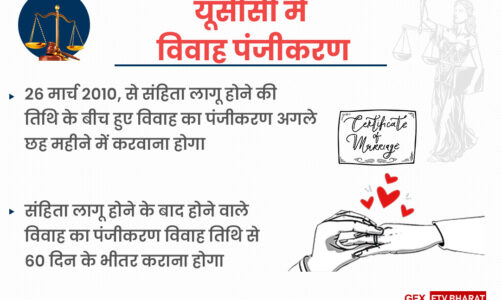 यूसीसी में
विवाह पंजीकरण
26 मार्च 2010, से संहिता लागू होने की
तिथि के बीच हुए विवाह का पंजीकरण अगले
छह महीने में करवाना होगा
Certificate
of
Marriage
संहिता लागू होने के बाद होने वाले
विवाह का पंजीकरण विवाह तिथि से
60 दिन के भीतर कराना होगा
GFX ETV BHARAT